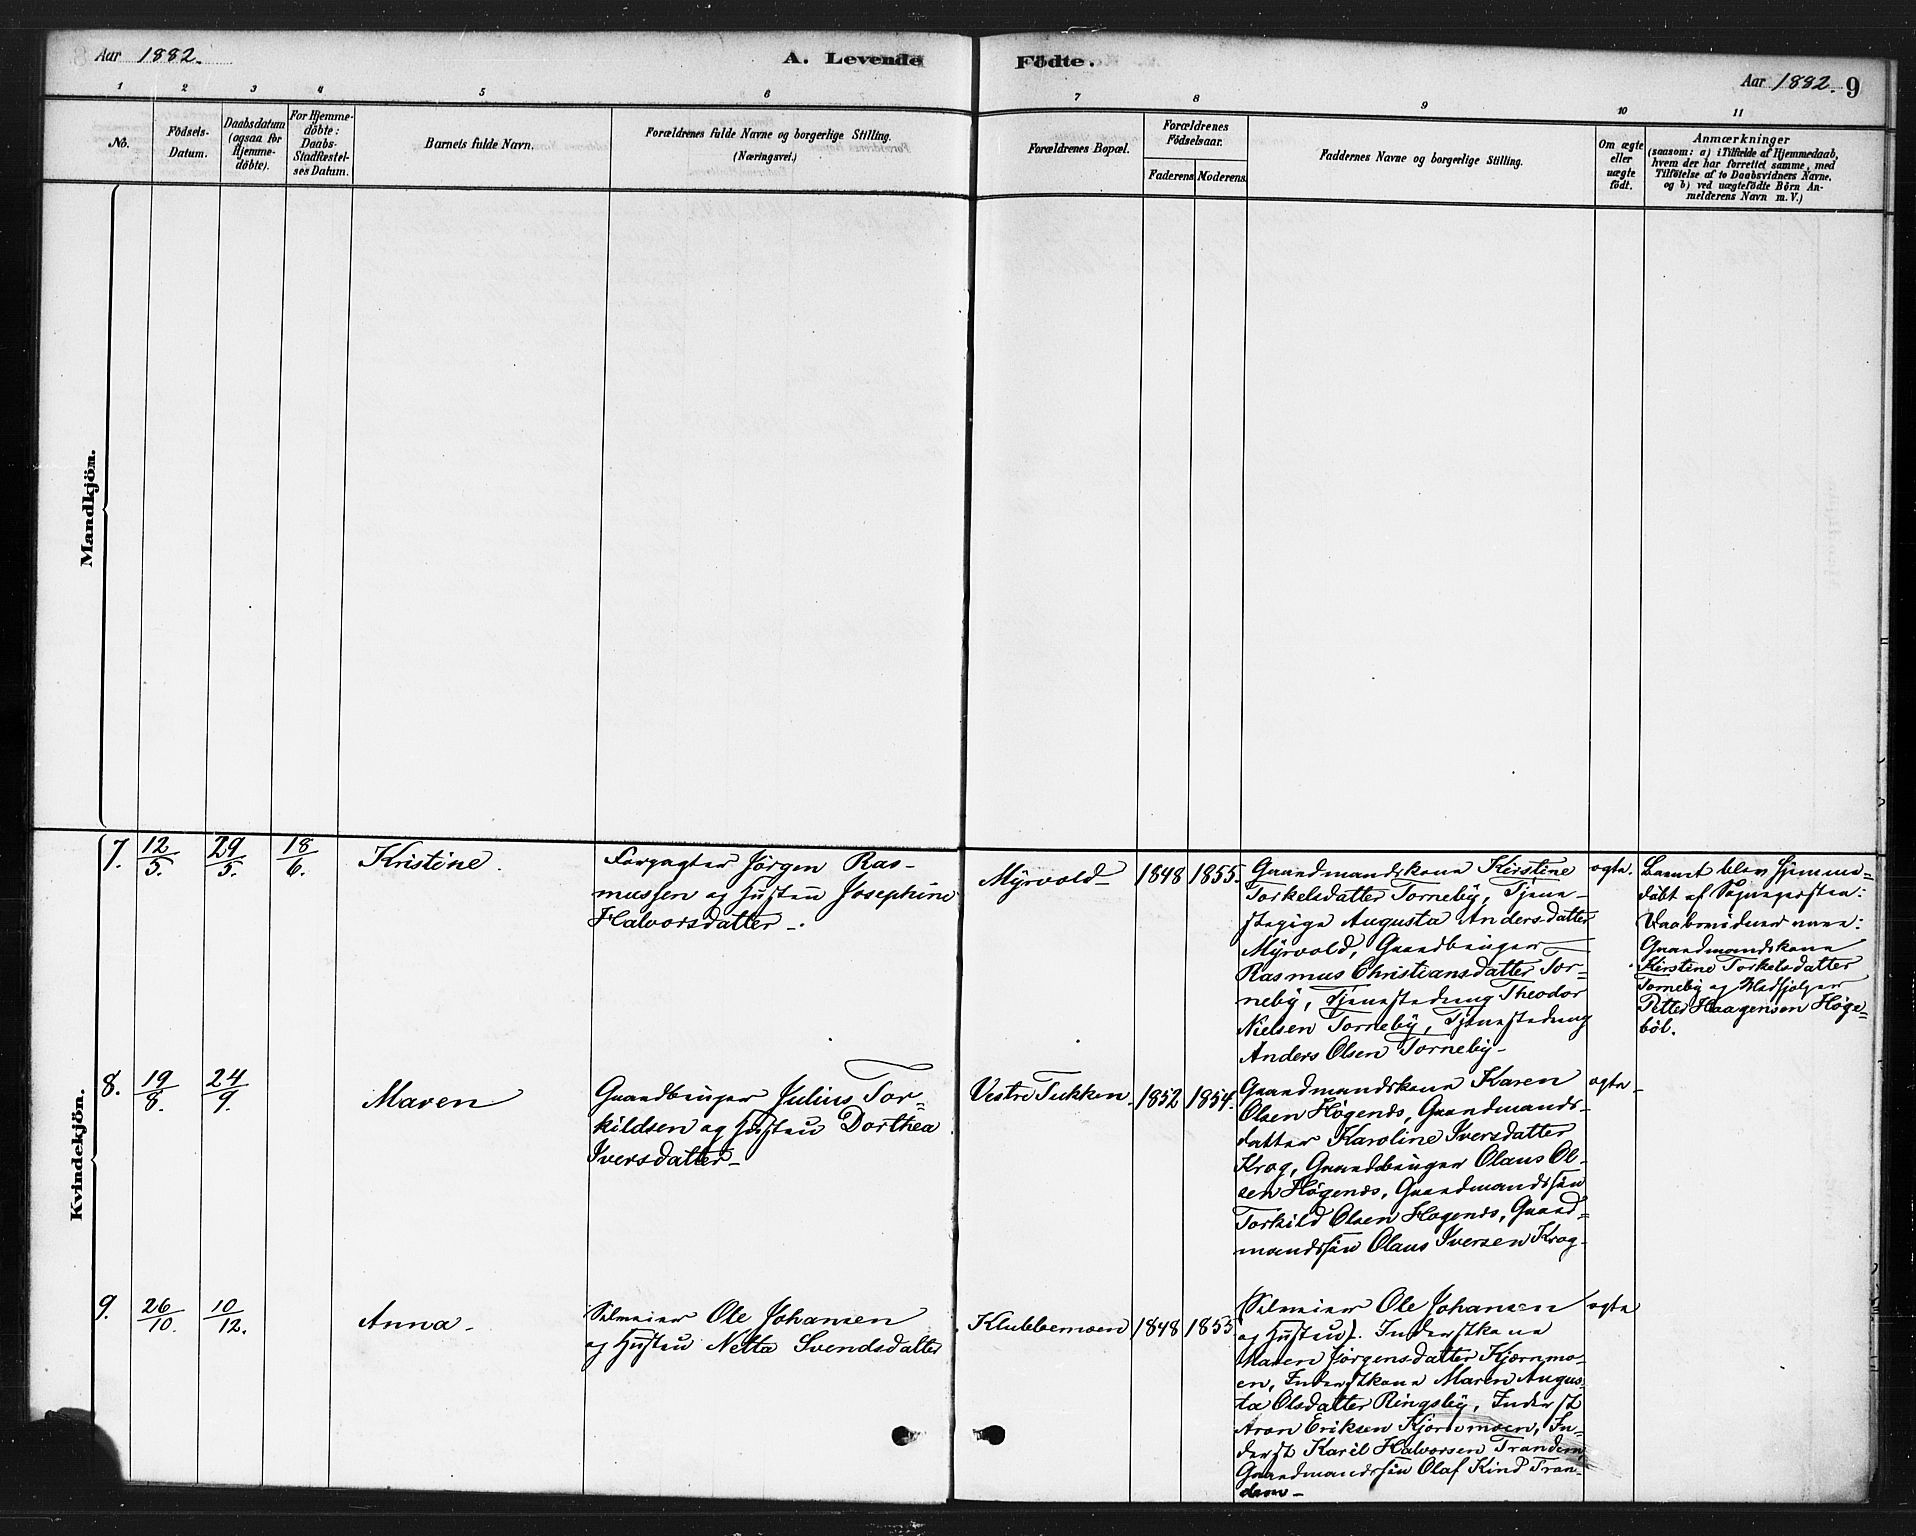 Aar 1882.
A. Levende Födte.
Aar 1882. 9
1 2 3 4 5 6 7 8 9 10 11
No.
Födsels-
Datum.
Daabsdatum
(ogsaa for
Hjemme-
döbte).
For Hjemme-
döbte:
Daabs-
Stadfæstel-
ses Datum.
Barnets fulde Navn.
Forældrenes fulde Navne og borgerlige Stilling.
(Næringsvei.)
Forældrenes Bopæl.
Forældrenes
Födselsaar.
Faderens Moderens.
Faddernes Navne og borgerlige Stilling.
Om ægte
eller
uægte
födt.
Anmærkninger
(saasom: a) i Tilfælde af Hjemmedaab,
hvem der har forrettet samme, med
Tilföielse af to Daabsvidners Navne,
og b) ved uægtefödte Börn An-
melderens Navn m. V.)
Mandkjön.
Kvindekjön.
7. 12/5. 29/5. 18/6.
Kristine.
Forpagter Jörgen Ras-
mussen og Hustru Josephine
Halvorsdatter -.
Myrvold-
1848 1855.
Gaardmandskone Kirstine
Torkelsdatter Torneby, Tjene-
stepige Augusta Andersdatter
Myrvold, Gaardbruger
Rasmus Christiansdatter Tor-
neby, Tjenestedreng Theodor
Nielsen Torneby, Tjenestedreng
Anders Olsen Torneby-
ægte.
Barnet blev hjemme-
døbt af Sognepresten:
Daabsvidner vare:
Gaardmandskone
Kirstine Torkelsdatter
Torneby og
Petter Haagensen Høge-
böl.
8. 19/8. 24/9.
Maren
Gaardbruger Julius Tor-
kildsen og Hustru Dorthea
Iversdatter-
Vestre Tukken.
1852 1854.
Gaardmandskone Karen
Olsen Høgenæs, Gaardmands-
datter Karoline Iversdatter
Krog, Gaardbruger Olaus Ol-
sen Høgenæs, Gaardmandssøn
Torkild Olsen Høgenæs, Gaard-
mandssøn Olaus Iversen Krog-
ægte-
9. 26/10. 10/12.
Anna-
Selveier Ole Johansen
og Hustru Netta Svendsdatter
Klubbemoen
1848 1855
(Selveier Ole Johansen
og Hustru). Inderstkone
Maren Jørgensdatter Kjærnmo-
en, Inderstkone Maren Augus-
ta Olsdatter Ringsby, Inderst
Aron Eriksen Kjærnmoen, In-
derst Karil Halvorsen Trandem,
Gaardmandssøn Olaf Kind Tran-
dem-
ægte